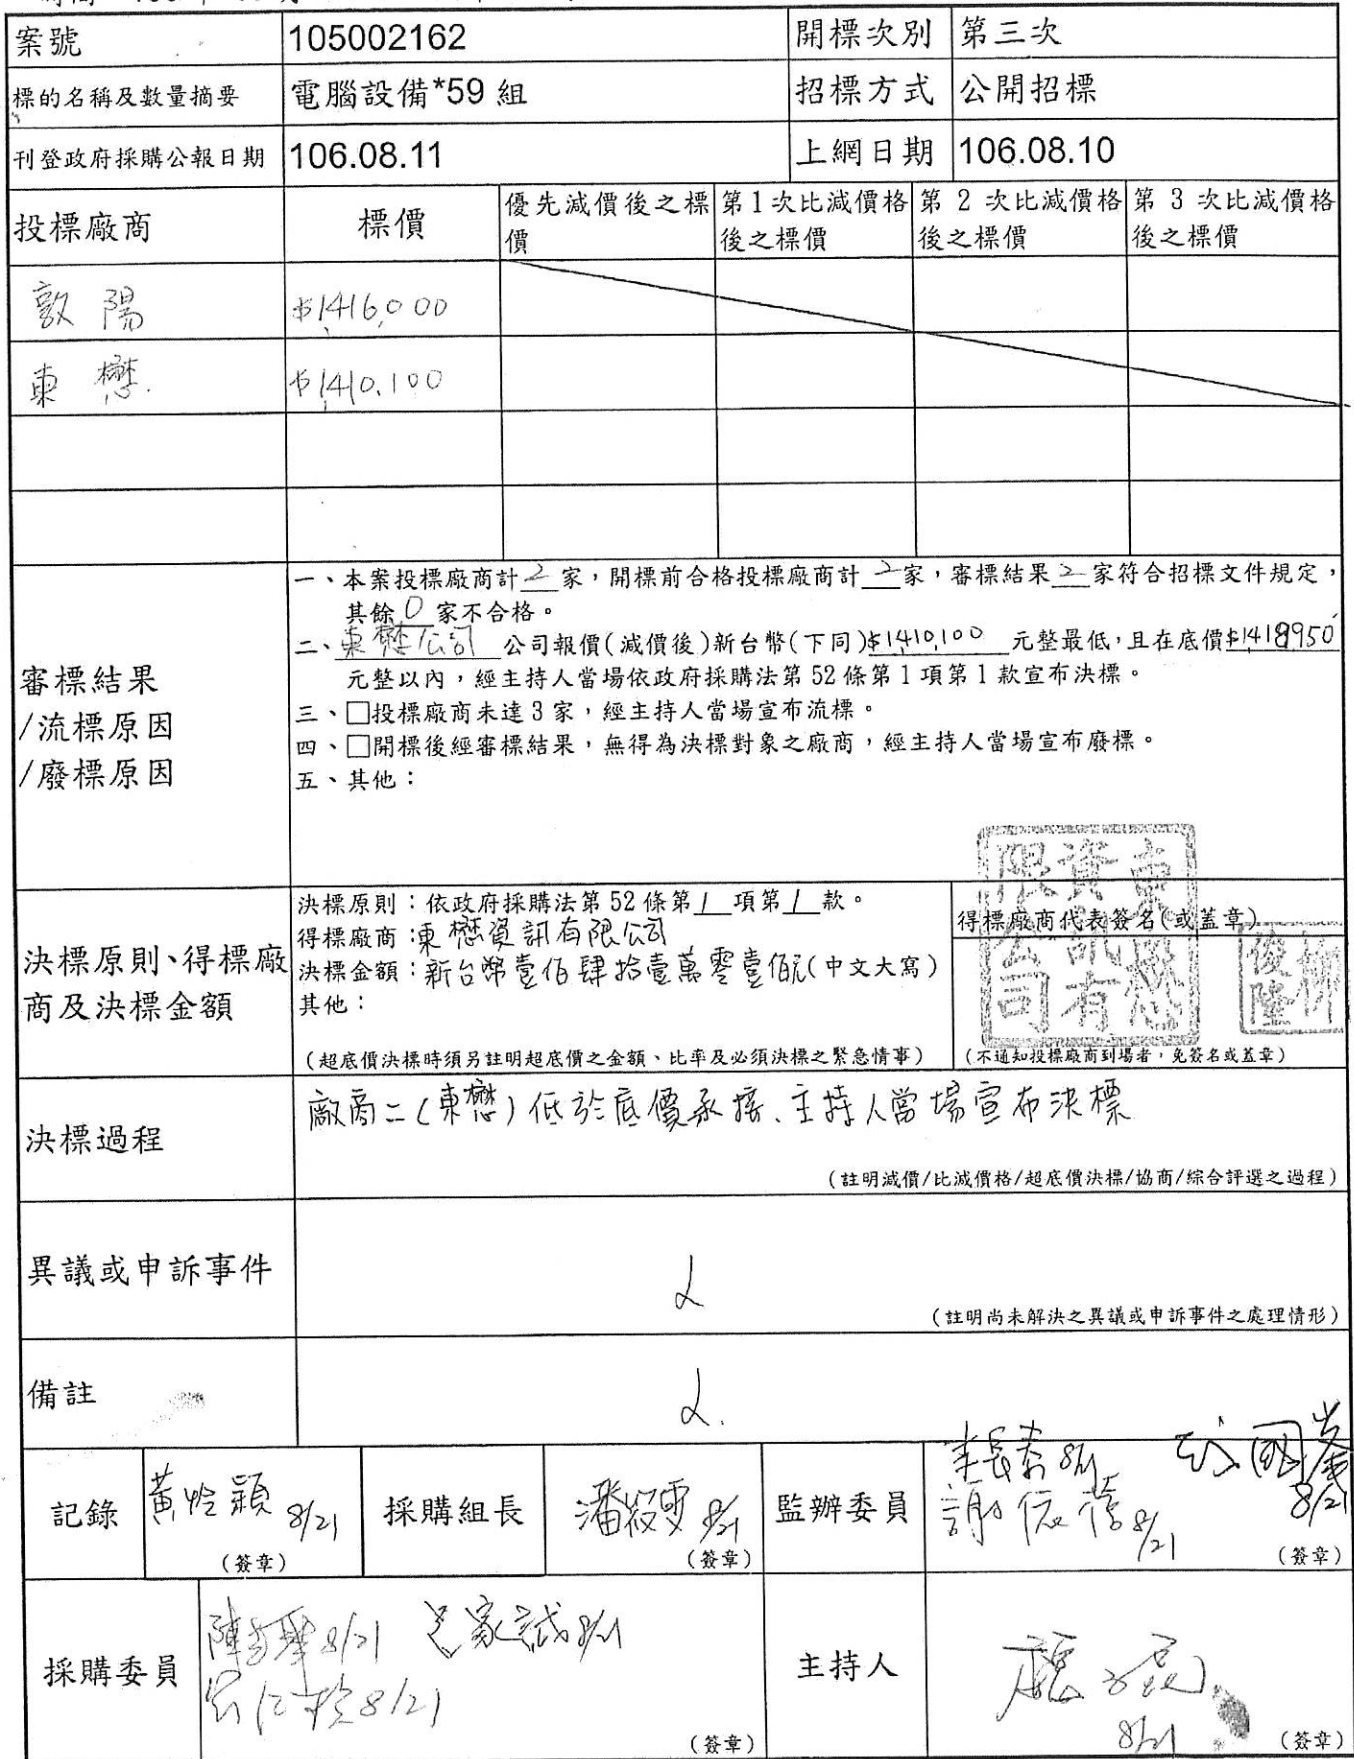 案號 105002162 開標次別 第三次
標的名稱及數量摘要 電腦設備*59 組 招標方式 公開招標
刊登政府採購公報日期 106.08.11 上網日期 106.08.10
投標廠商 標價 優先減價後之標價 第1次比減價格後之標價 第 2 次比減價格後之標價 第 3 次比減價格後之標價
敦陽 $1,416,000
東懋 $1,410,100
審標結果
/流標原因
/廢標原因
一、本案投標廠商計 2 家，開標前合格投標廠商計 2 家，審標結果 2 家符合招標文件規定，
其餘 0 家不合格。
二、東懋公司 公司報價(減價後)新台幣(下同)$1,410,100 元整最低，且在底價$1,418950
元整以內，經主持人當場依政府採購法第 52 條第 1 項第 1 款宣布決標。
三、□投標廠商未達 3 家，經主持人當場宣布流標。
四、□開標後經審標結果，無得為決標對象之廠商，經主持人當場宣布廢標。
五、其他：
決標原則、得標廠
商及決標金額
決標原則：依政府採購法第 52 條第 1 項第 1 款。
得標廠商：東懋資訊有限公司
決標金額：新台幣壹佰肆拾壹萬零壹佰元(中文大寫)
其他：
(超底價決標時須另註明超底價之金額、比率及必須決標之緊急情事)
得標廠商代表簽名(或蓋章)
東懋資訊有限公司
柳俊陞
(不通知投標廠商到場者，免簽名或蓋章)
決標過程
廠商二(東懋)低於底價承接、主持人當場宣布決標
(註明減價/比減價格/超底價決標/協商/綜合評選之過程)
異議或申訴事件
(註明尚未解決之異議或申訴事件之處理情形)
備註
記錄 黃怜穎 8/21 (簽章)
採購組長 潘筱雯 8/21 (簽章)
監辦委員 8/21 謝依蓓 8/21 8/21 (簽章)
採購委員 8/21 8/21 8/21 (簽章)
主持人 8/21 (簽章)